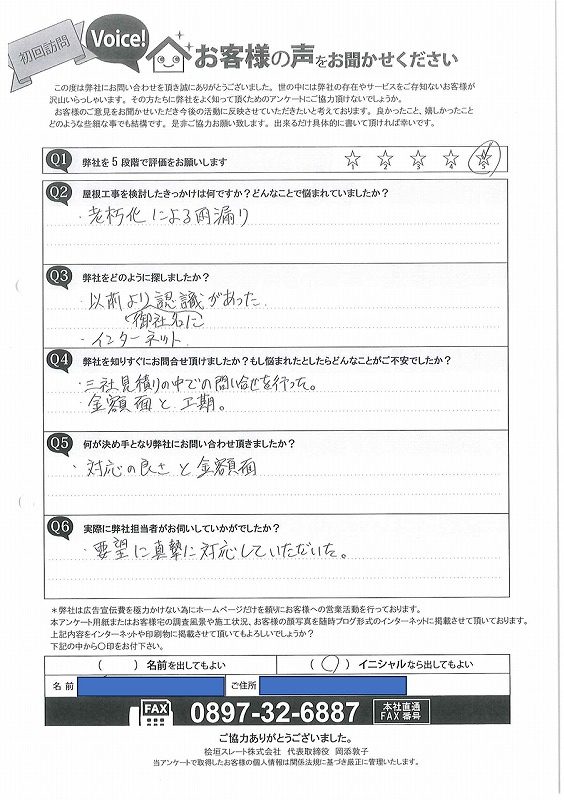 初回訪問
Voice!
お客様の声をお聞かせください
この度は弊社にお問い合わせを頂き誠にありがとうございました。世の中には弊社の存在やサービスをご存知ないお客様が
沢山いらっしゃいます。その方たちに弊社をよく知って頂くためのアンケートにご協力頂けないでしょうか。
お客様のご意見をお聞かせいただき今後の活動に反映させていただきたいと考えております。良かったこと、嬉しかったこと
どのような些細な事でも結構です。是非ご協力お願い致します。出来るだけ具体的に書いて頂ければ幸いです。
Q1 弊社を5段階で評価をお願いします
1 2 3 4 5
Q2 屋根工事を検討したきっかけは何ですか?どんなことで悩まれていましたか?
・老朽化による雨漏り
Q3 弊社をどのように探しましたか?
・以前より認識があった。
御社名に
・インターネット
Q4 弊社を知りすぐにお問合せ頂けましたか?もし悩まれたとしたらどんなことがご不安でしたか?
・三社見積りの中での問い合せを行った。
・金額面と工期。
Q5 何が決め手となり弊社にお問い合わせ頂きましたか?
・対応の良さと金額面
Q6 実際に弊社担当者がお伺いしていかがでしたか?
・要望に真摯に対応していただいた。
*弊社は広告宣伝費を極力かけない為にホームページだけを頼りにお客様への営業活動を行っております。
本アンケート用紙またはお客様宅の調査風景や施工状況、お客様の顔写真を随時ブログ形式のインターネットに掲載させて頂いております。
上記内容をインターネットや印刷物に掲載させて頂いてもよろしいでしょうか?
下記の中から〇印をお付下さい。
( ) 名前を出してもよい
(〇) イニシャルなら出してもよい
名前
ご住所
FAX 0897-32-6887 本社直通
FAX番号
ご協力ありがとうございました。
桧垣スレート株式会社 代表取締役 岡添敦子
当アンケートで取得したお客様の個人情報は関係法規に基づき厳正に管理いたします。